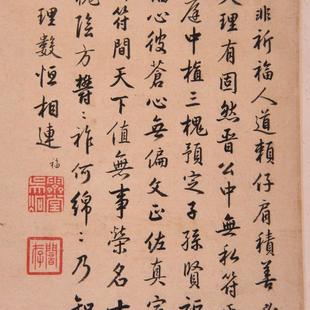 非祈福人道賴仔肩積善
理有固然晉公中無私符
庭中植三槐預定子孫賢
心彼蒼心無偏文正佐真宗
符間天下值無事榮名
陰方欝〻祚何綿〻乃
理數恒相連
福